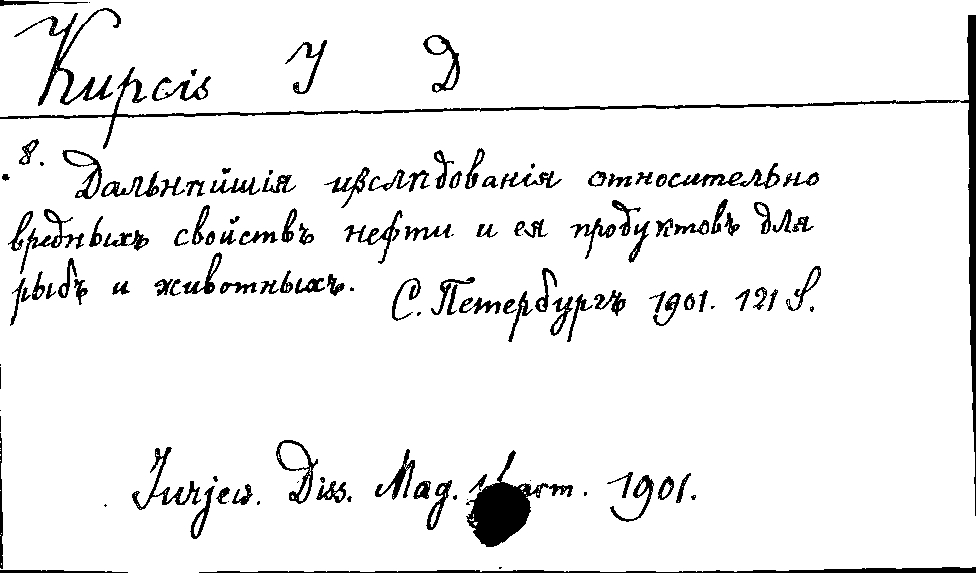 Kupcis J D
8.
Дальнѣйшія изслѣдованія относительно
вредныхъ свойствъ нефти и ея продуктовъ для
рыбъ и животныхъ.
С. Петербургъ 1901. 121 S.
Jurjew. Diss. Mag. 1901.